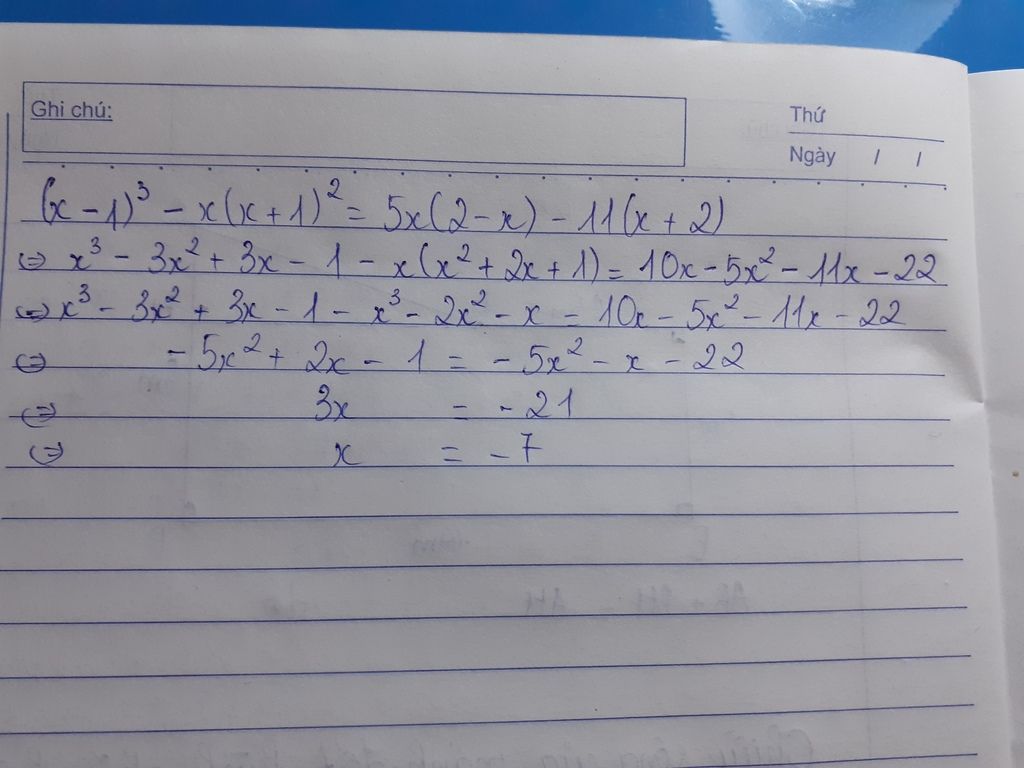 Ghi chú:
Thứ
Ngày / /
(x - 1)³ - x(x + 1)² = 5x(2 - x) - 11(x + 2)
⇔ x³ - 3x² + 3x - 1 - x(x² + 2x + 1) = 10x - 5x² - 11x - 22
⇔ x³ - 3x² + 3x - 1 - x³ - 2x² - x = 10x - 5x² - 11x - 22
⇔ - 5x² + 2x - 1 = - 5x² - x - 22
⇔ 3x = - 21
⇔ x = - 7